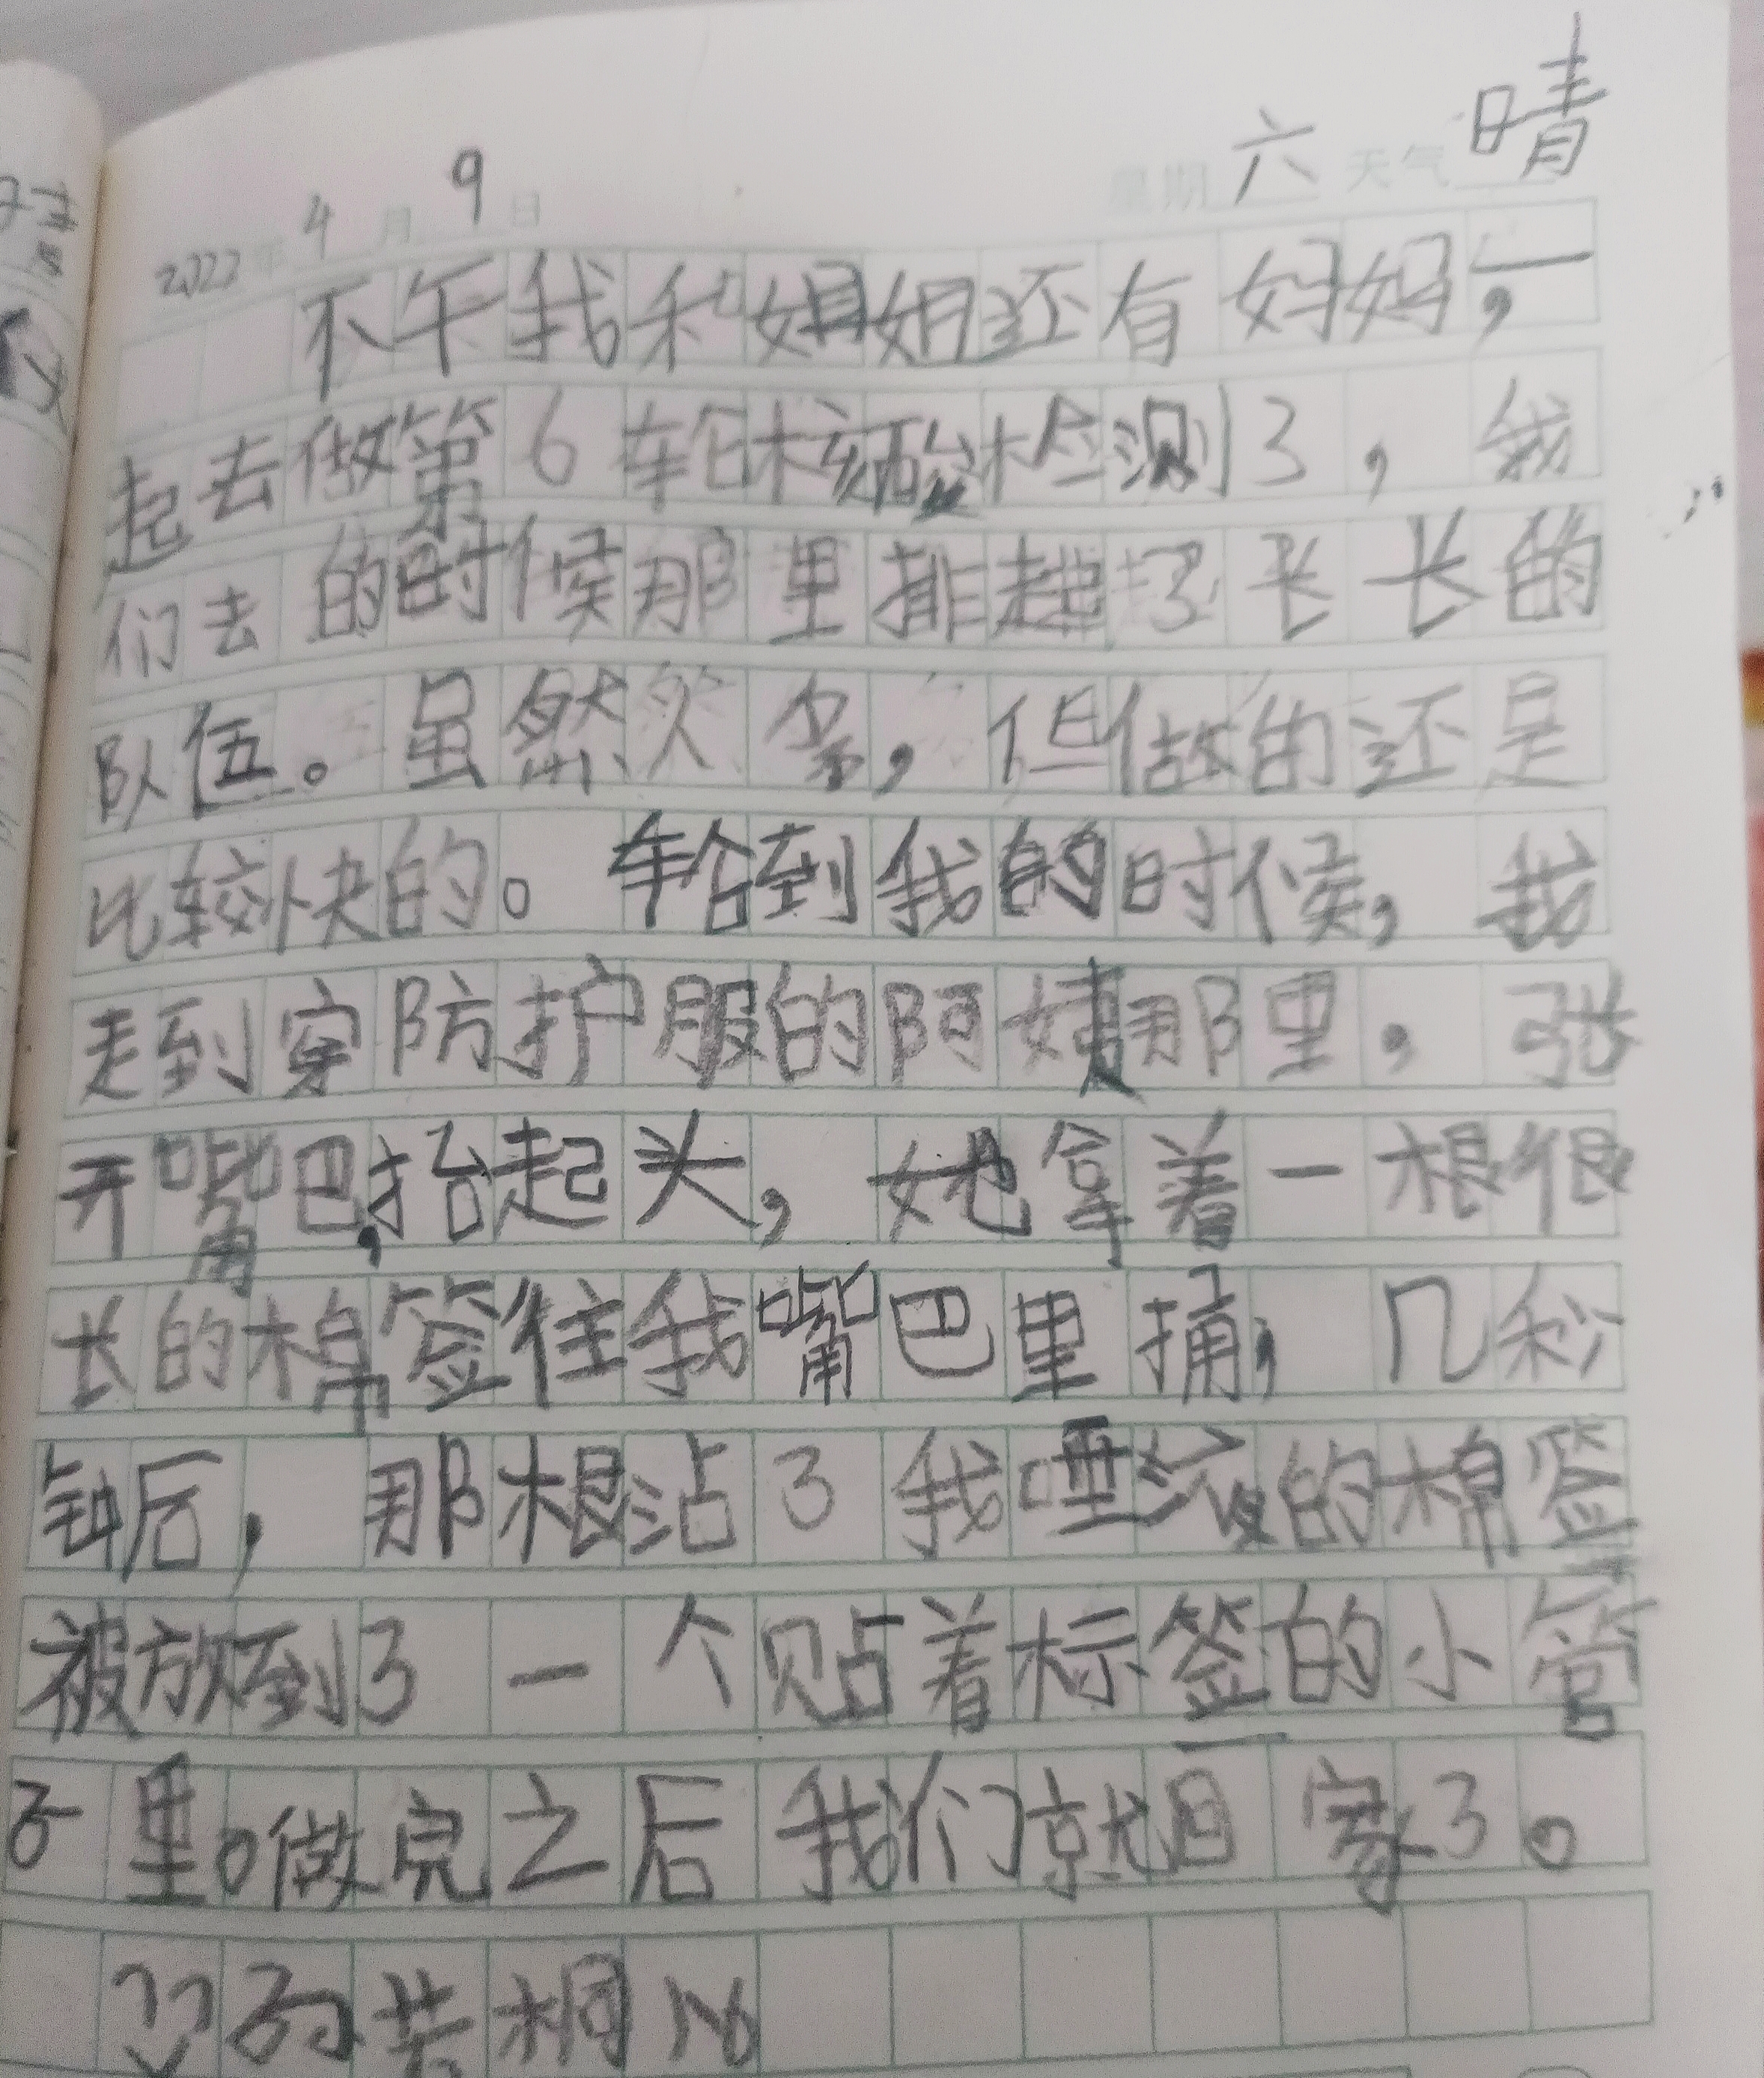 2022年 4月 9日 星期 六 天气 晴
下午我和姐姐还有妈妈，一
起去做第6轮核酸检测了，我
们去的时候那里排起了长长的
队伍。虽然人多，但做的还是
比较快的。轮到我的时候，我
走到穿防护服的阿姨那里，张
开嘴巴，抬起头，她拿着一根很
长的棉签往我嘴巴里捅，几秒
钟后，那根沾了我唾液的棉签
被放到了一个贴着标签的小管
子里。做完之后我们就回家了。